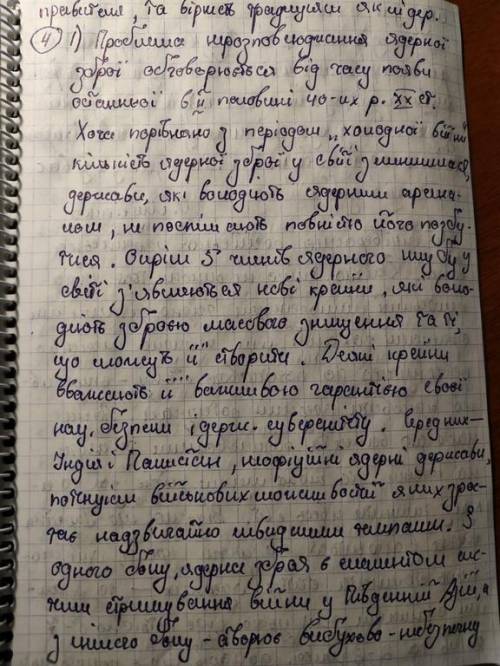 правителя, та вірність традиціям як лідер.
4 1) Проблема нерозповсюдження ядерної
зброї обговорюється від часу появи
останньої в ІІ половині 40-их р. ХХ ст.
Хоча порівняно з періодом „холодної війни"
кількість ядерної зброї у світі зменшилася,
держави, які володіють ядерним арсена-
лом, не поспішають повністю його позбу-
тися. Окрім 5 членів ядерного клубу у
світі з'являються нові країни, які воло-
діють зброєю масового знищення та ті,
що можуть її створити. Деякі країни
вважають її важливою гарантією своєї
нац. безпеки і держ. суверенітету. Серед них -
Індія і Пакистан, неофіційні ядерні держави,
потенціал військових можливостей яких зрос-
тає надзвичайно швидкими темпами. З
одного боку, ядерна зброя є елементом сис-
теми стримування війни у Південній Азії, а
з іншого боку - створює вибухово-небезпечну